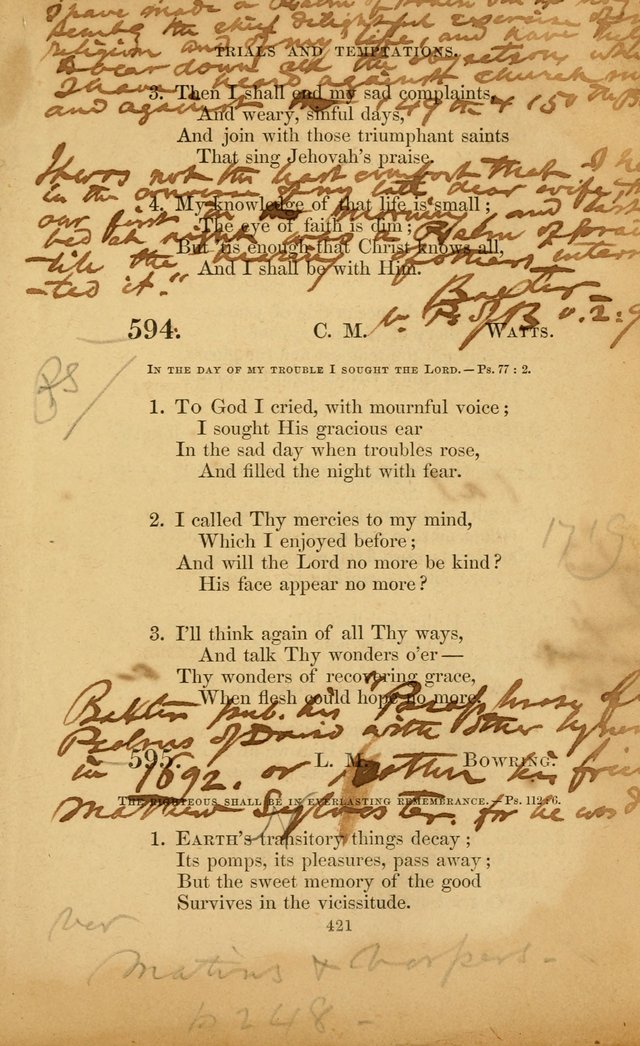 I have made a Psalm of
Sembly the chief delightful exercise of
religion and of my life, and have
TRIALS AND TEMPTATIONS.
bear down all the objections
I have heard against church
3. Then I shall end my sad complaints,
and against the 149th & 150th
And weary, sinful days,
And join with those triumphant saints
That sing Jehovah's praise.
It was not the least comfort that I
in the converse of my late dear wife
4. My knowledge of that life is small;
our first in the morning and last
The eye of faith is dim;
bed at night was a Psalm of
But 'tis enough that Christ knows all,
till the hearing of others inter
And I shall be with Him.
-ted it."
Baxter
594. C. M. WATTS.
IN THE DAY OF MY TROUBLE I SOUGHT THE LORD.—Ps. 77 : 2.
1. TO God I cried, with mournful voice;
I sought His gracious ear
In the sad day when troubles rose,
And filled the night with fear.
2. I called Thy mercies to my mind,
Which I enjoyed before;
1719
And will the Lord no more be kind?
His face appear no more?
3. I'll think again of all Thy ways,
And talk Thy wonders o'er—
Thy wonders of recovering grace,
When flesh could hope no more.
Baxter pub. his "Paraphrase of
Psalms of David with other hymns
595. L. M. BOWRING.
in 1692. or rather his friend
THE RIGHTEOUS SHALL BE IN EVERLASTING REMEMBRANCE.—Ps. 112 : 6.
Matthew Sylvester. for he was
1. EARTH'S transitory things decay;
Its pomps, its pleasures, pass away;
But the sweet memory of the good
Survives in the vicissitude.
421
ver
Matins & Vespers -
p 248 -